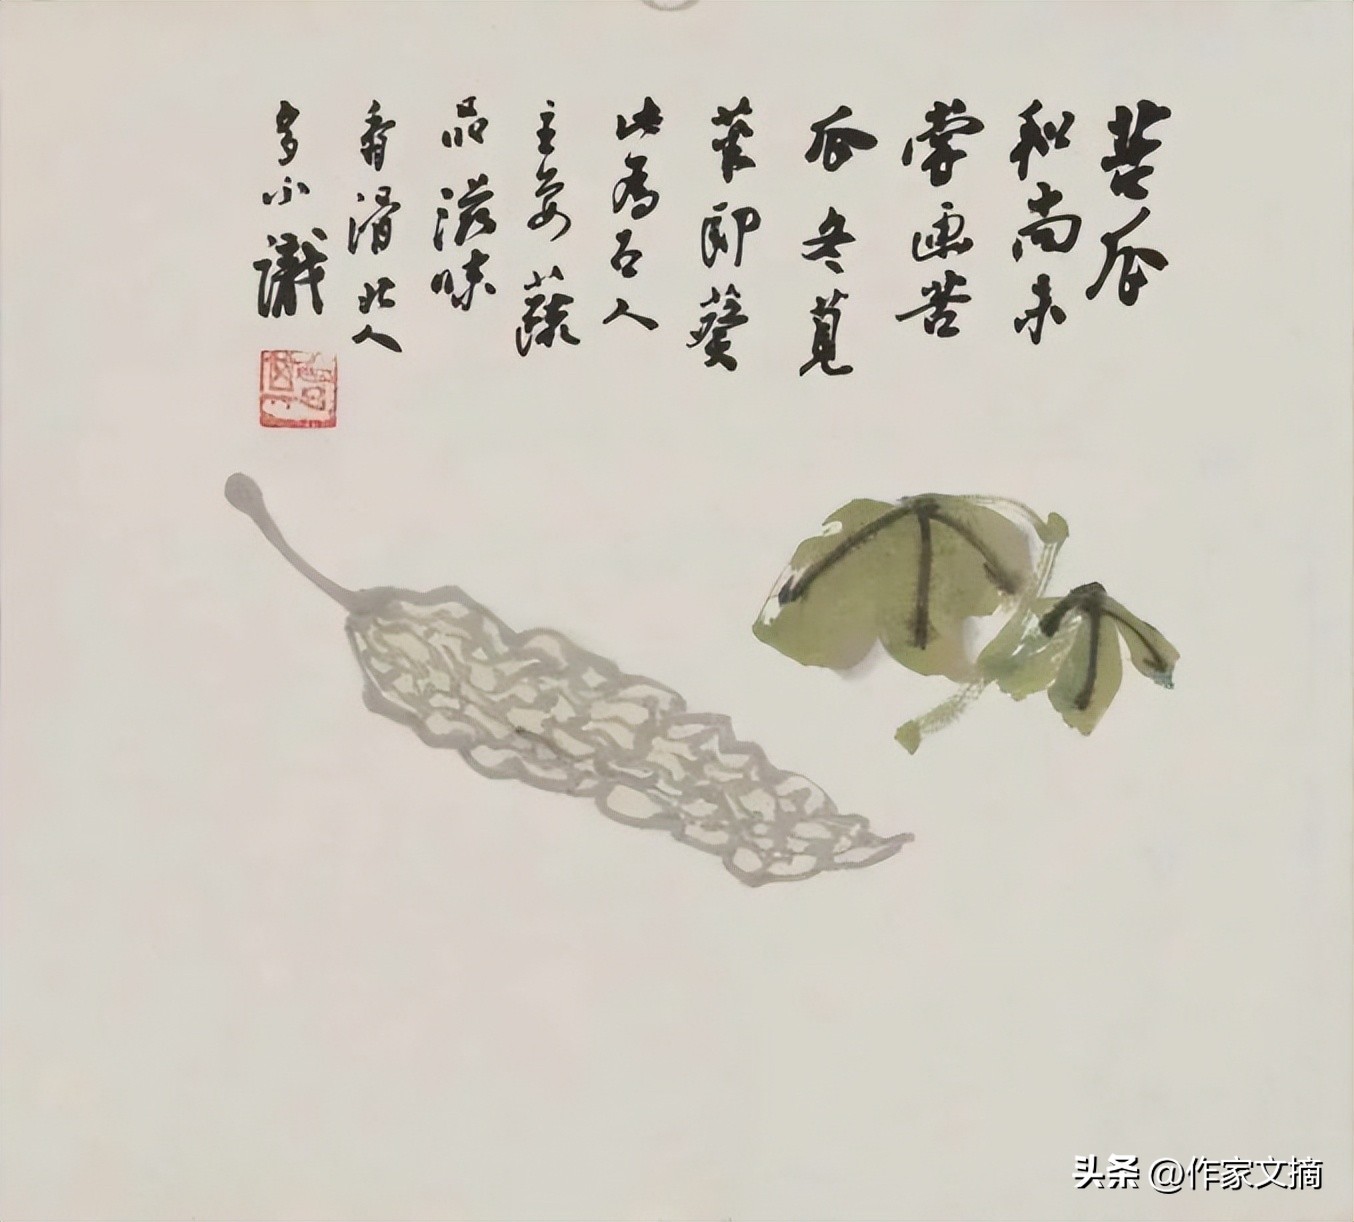 苦瓜
和尚未
嘗画苦
瓜冬莧
菜即葵
此为古人
主要蔬
品滋味
香滑北人
多不識
头条 @作家文摘